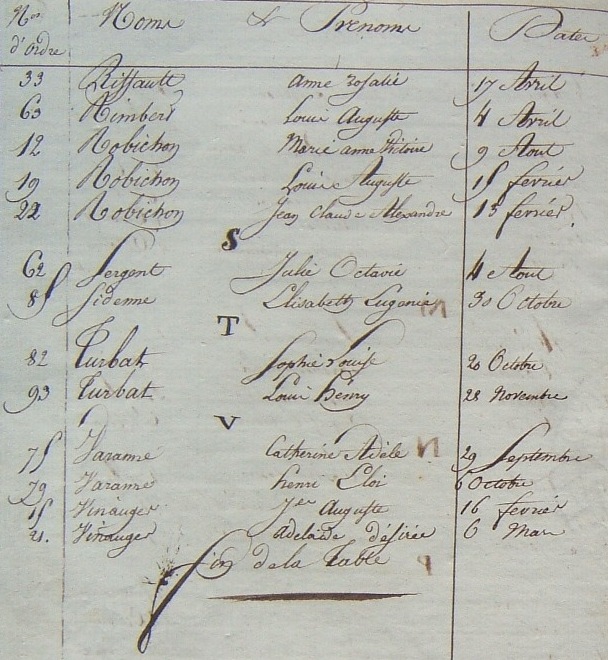 Nos d'ordre Noms & Prénoms Dates
33 Riffault anne rosalie 17 Avril
63 Rimbert Louis Auguste 4 Avril
12 Robichon Marie anne Victoire 9 Aout
19 Robichon Louis Auguste 15 fevrier
22 Robichon Jean Claude Alexandre 13 fevrier
S
62 Sergent Julie Octavie 4 Aout
85 Sidenne Elisabeth Eugenie 30 Octobre
T
82 Turbat Sophie Louise 20 Octobre
93 Turbat Louis henry 28 Novembre
V
75 Varanne Catherine Adèle 29 Septembre
79 Varanne henri Eloi 6 Octobre
15 Vinauger Auguste 16 fevrier
21. Vinauger adelaide désirée 6 Mars
fin de la Table